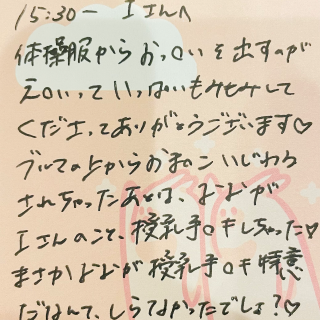 15:30〜 Iさんへ
体操服からおっ○いを出すのが
えロいって いっぱいもみもみして
くださってありがとうございます♡
ブルマの上からおま○こ いじわる
されちゃったあとは、ななが
Iさんのこと、授乳手○キしちゃった♡
まさかななが授乳手○キ得意
だなんて、しらなかったでしょ?♡